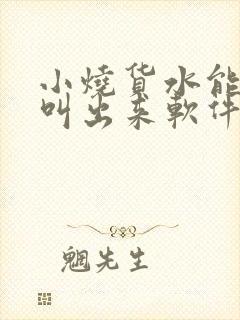 小燒货水能
叫出来軟件
魍先生